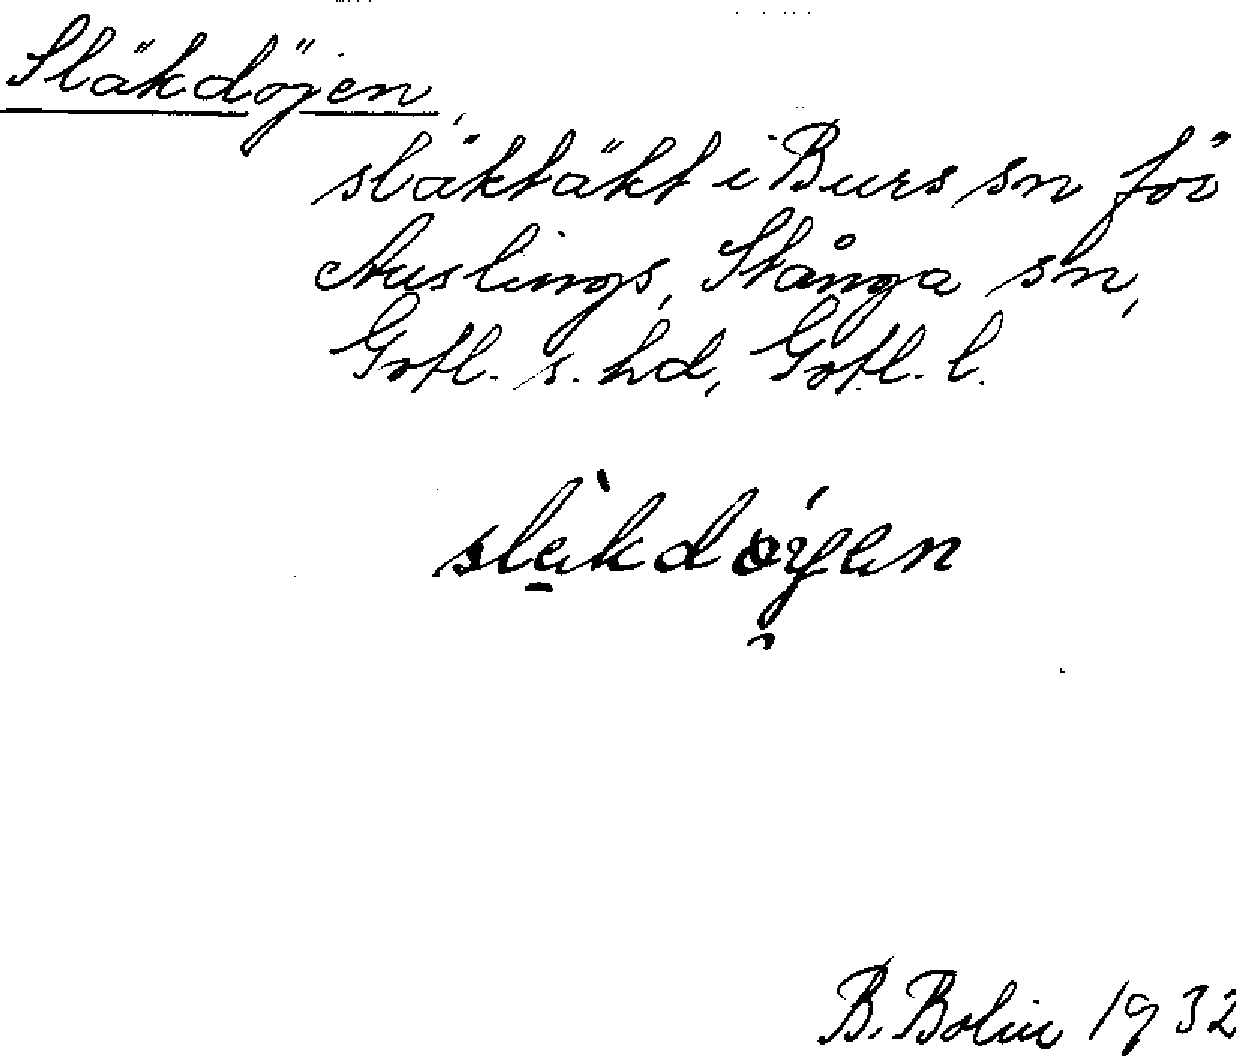 Släkdöjen,
släktäkt i Burs sn för
Auslings, Stånga sn,
Gotl. s. hd, Gotl. l.
slèkdǫýen
B. Bolin 1932